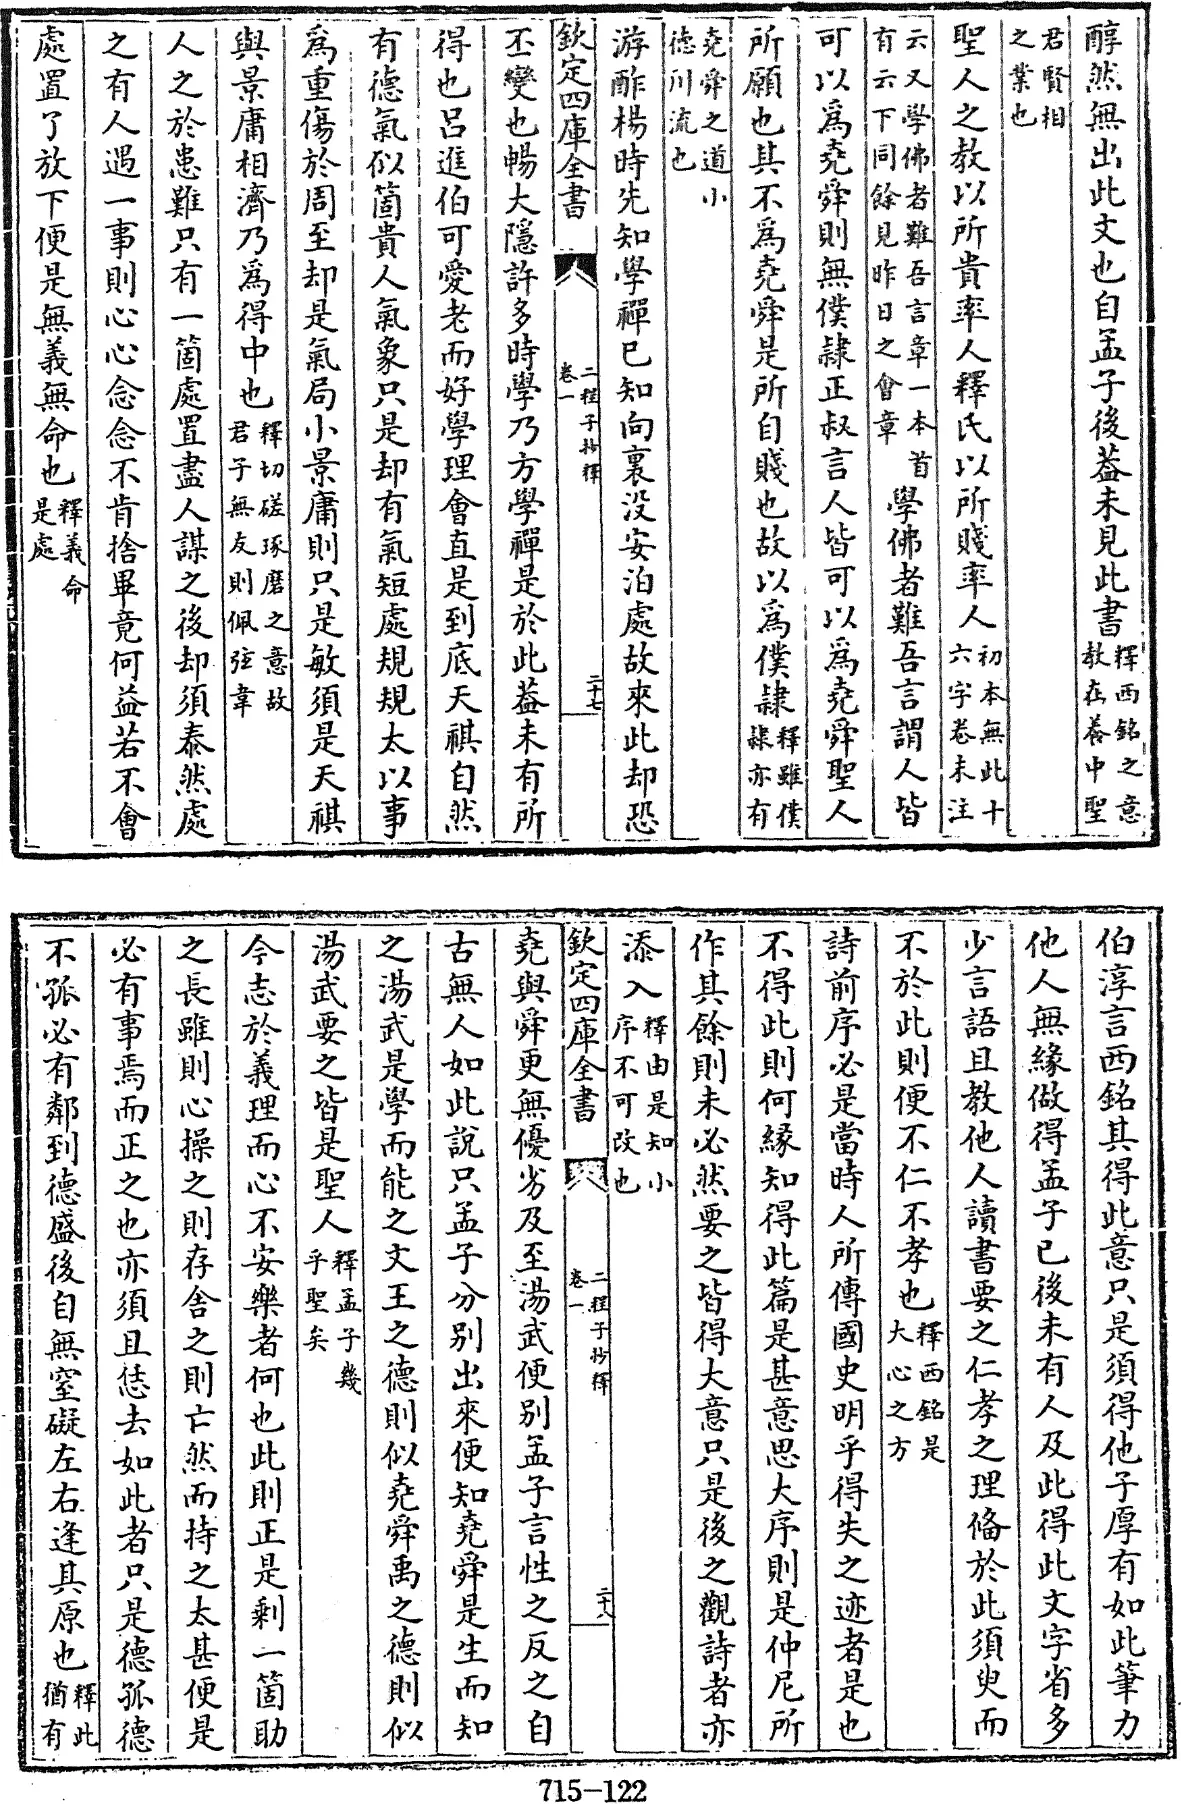 醇然無出此文也自孟子後葢未見此書釋西銘之意教在養中聖
君賢相之業也
聖人之教以所貴率人釋氏以所賤率人初本無此十六字卷末注
云又學佛者難吾言章一本首有云下同餘見昨日之會章學佛者難吾言謂人皆
可以為堯舜則無僕隷正叔言人皆可以為堯舜聖人
所願也其不為堯舜是所自賤也故以為僕隷釋雖僕隷亦有
堯舜之道小德川流也
游酢楊時先知學禪已知向裏沒安泊處故來此却恐
欽定四庫全書 二程子抄釋 卷一 二十七
不變也暢大隱許多時學乃方學禪是於此葢未有所
得也呂進伯可愛老而好學理會直是到底天祺自然
有德氣似箇貴人氣象只是却有氣短處規規太以事
為重傷於周至却是氣局小景庸則只是敏須是天祺
與景庸相濟乃為得中也釋切磋琢磨之意故君子無友則佩弦韋
人之於患難只有一箇處置盡人謀之後却須泰然處
之有人遇一事則心心念念不肯捨畢竟何益若不會
處置了放下便是無義無命也釋義命是處
伯淳言西銘某得此意只是須得他子厚有如此筆力
他人無緣做得孟子已後未有人及此得此文字省多
少言語且教他人讀書要之仁孝之理備於此須臾而
不於此則便不仁不孝也釋西銘是大心之方
詩前序必是當時人所傳國史明乎得失之迹者是也
不得此則何緣知得此篇是甚意思大序則是仲尼所
作其餘則未必然要之皆得大意只是後之觀詩者亦
添入釋由是知小序不可改也
欽定四庫全書 二程子抄釋 卷一 二十八
堯與舜更無優劣及至湯武便別孟子言性之反之自
古無人如此說只孟子分別出來便知堯舜是生而知
之湯武是學而能之文王之德則似堯舜禹之德則似
湯武要之皆是聖人釋孟子幾乎聖矣
今志於義理而心不安樂者何也此則正是剩一箇助
之長雖則心操之則存舍之則亡然而持之太甚便是
必有事焉而正之也亦須且恁去如此者只是德孤德
不孤必有鄰到德盛後自無窒礙左右逢其原也釋此猶有
715-122